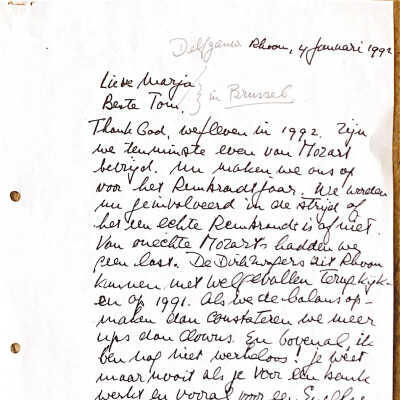 Delfgauw Rhoon, 4 Januari 1992
Lieve Marja
Beste Tom. } in Brussel
Thank God, we leven in 1992. Zijn
we tenminste even van Mozart
bevrijd. Nu maken we ons op
voor het Rembrandtjaar. We worden
nu geinvolveerd in de strijd of
het een echte Rembrandt is of niet.
Van onechte Mozarts hadden we
geen last. De Dirkzwagers uit Rhoon
kunnen met welgevallen terugkijk-
en op 1991. Als we de balans op-
maken dan constateren we meer
ups dan downs. En bovenal, ik
ben nog niet werkloos! Je weet
maar nooit als je voor een bank
werkt en vooral voor een